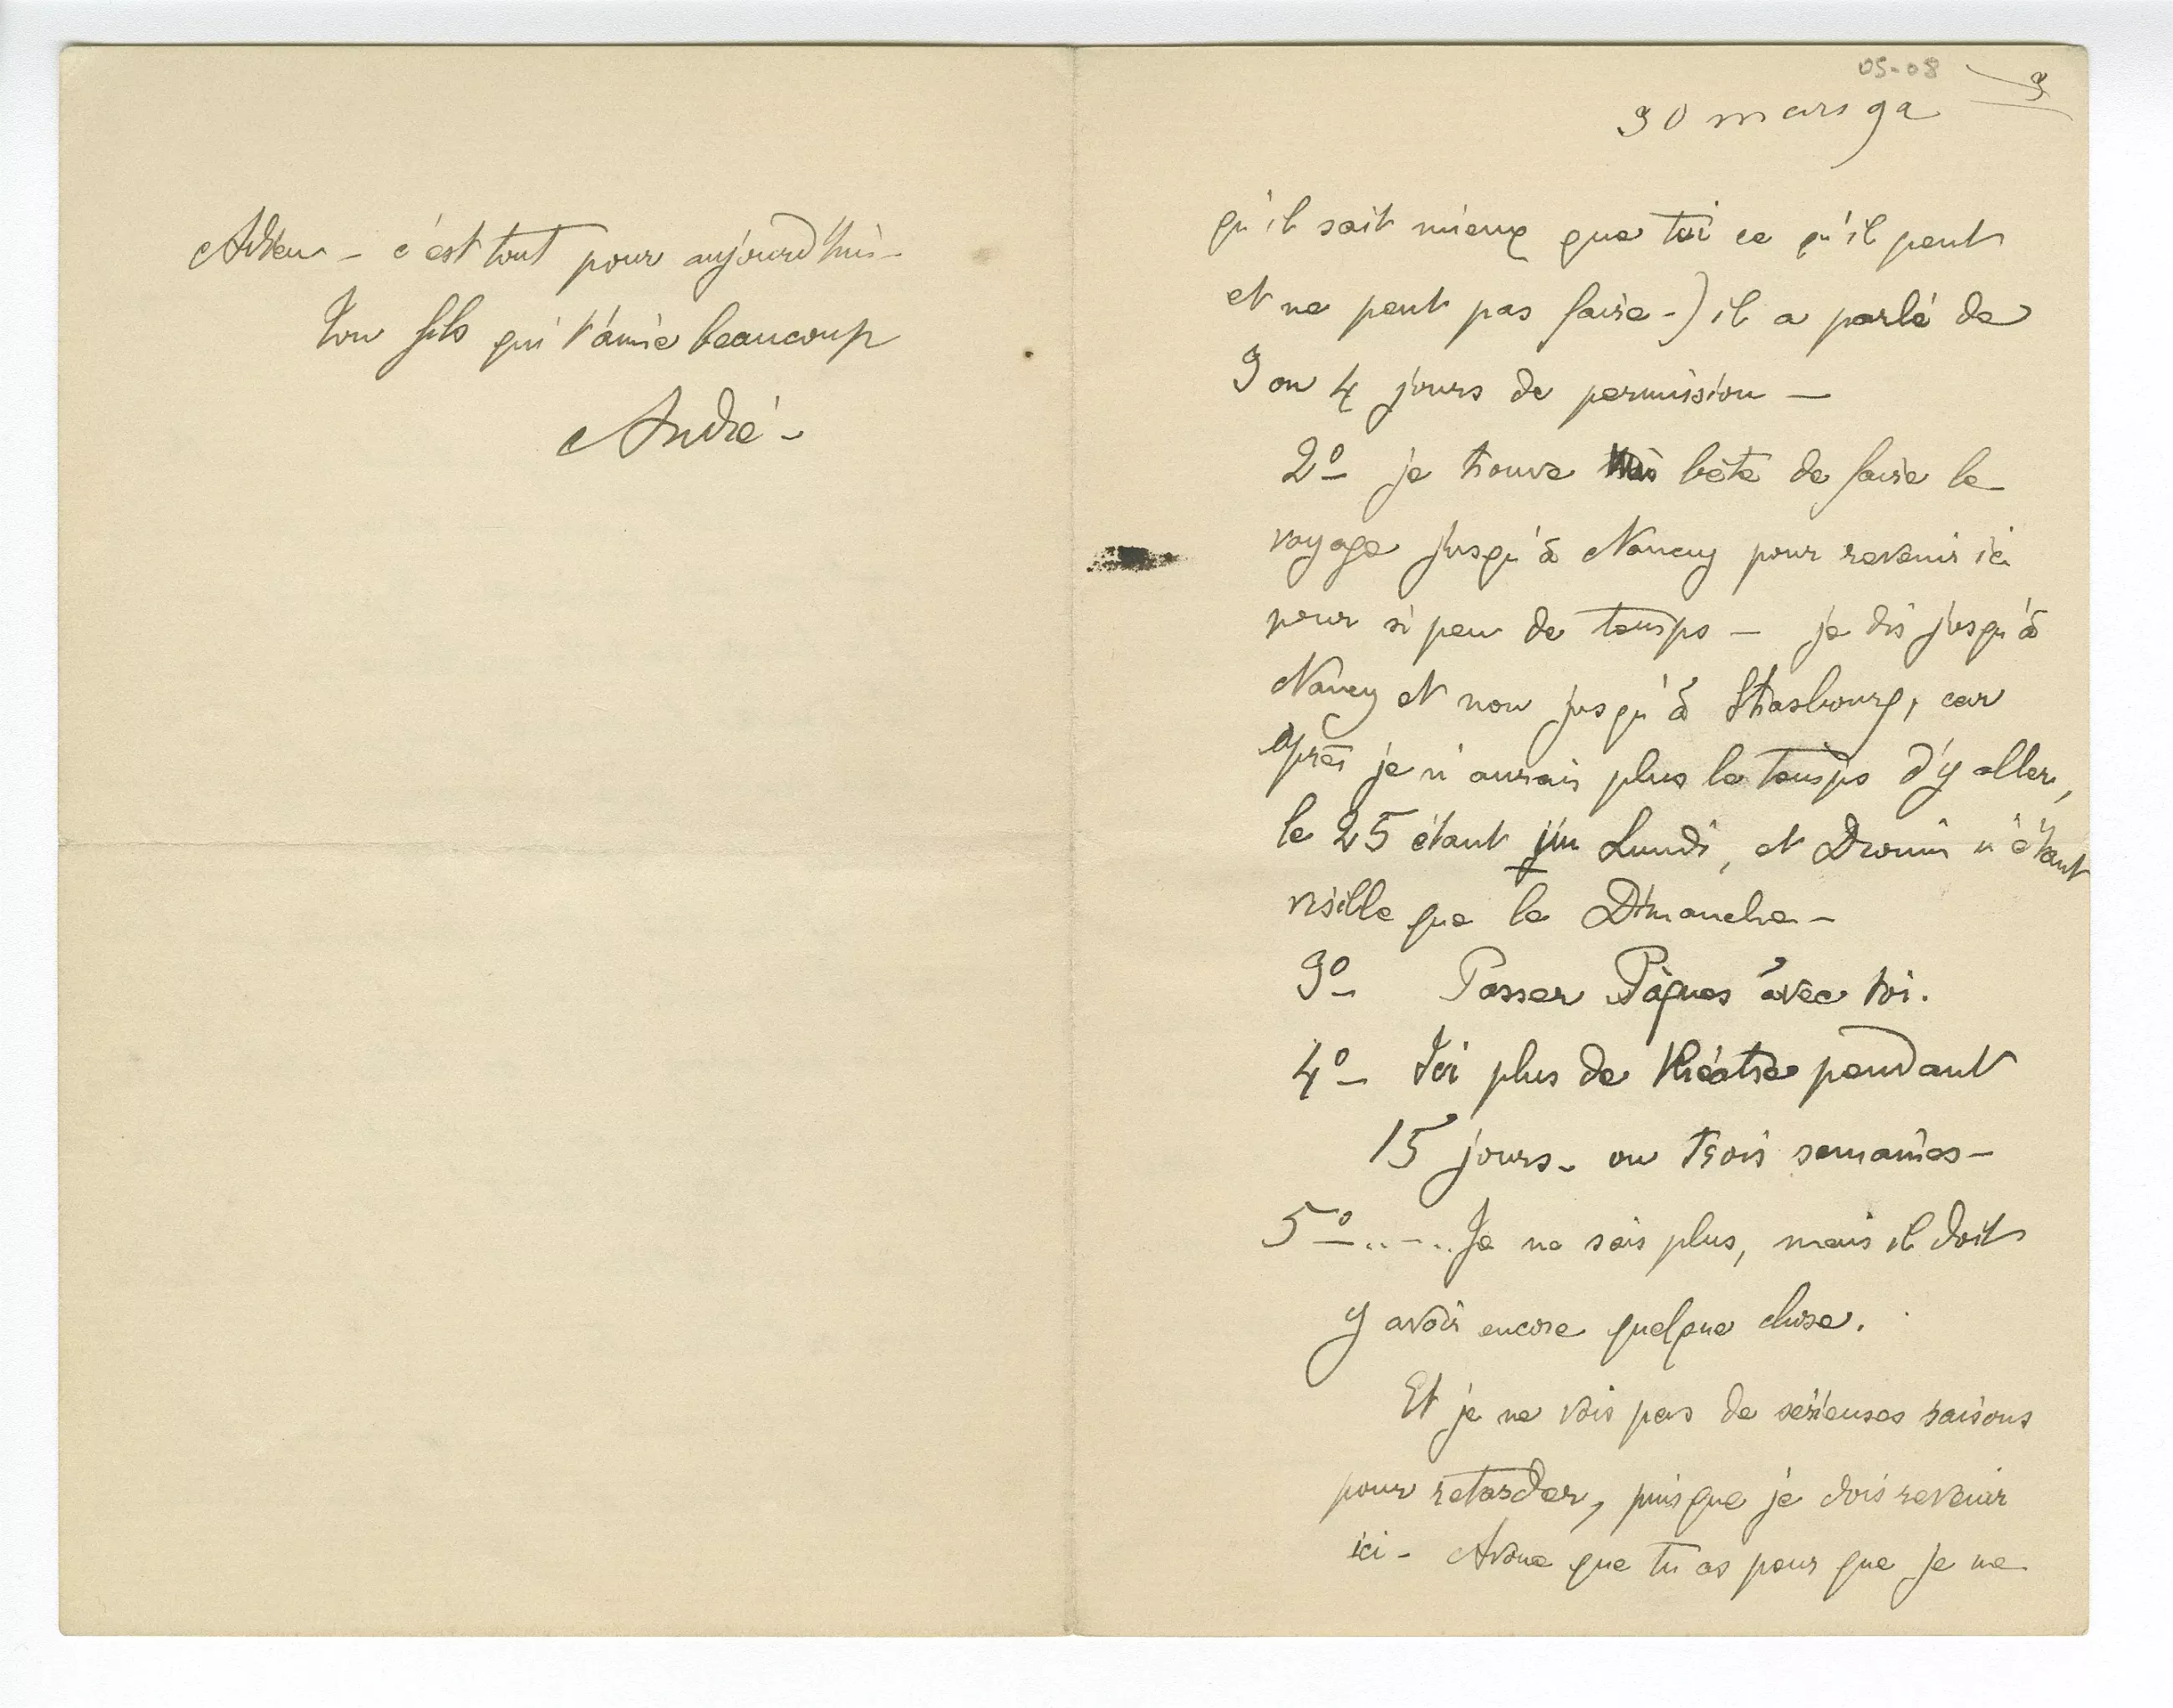 Adieu - c'est tout pour aujourd'hui -
Ton fils qui t'aime beaucoup
André -
05-08
3
30 mars 92
qu'il sait mieux que toi ce qu'il peut
et ne peut pas faire -) il a parlé de
3 ou 4 jours de permission -
2º je trouve très bête de faire le
voyage jusqu'à Nancy pour revenir ici
pour si peu de temps - je dis jusqu'à
Nancy et non jusqu'à Strasbourg, car
après je n'aurais plus le temps d'y aller,
le 25 étant un Lundi, et Drouin n'étant
visible que le Dimanche -
3º Passer Pâques avec toi.
4º Ici plus de théâtre pendant
15 jours - ou trois semaines -
5º ..-.. Je ne sais plus, mais il doit
y avoir encore quelque chose.
Et je ne vois pas de sérieuses raisons
pour retarder, puisque je dois revenir
ici - Avoue que tu as peur que je ne